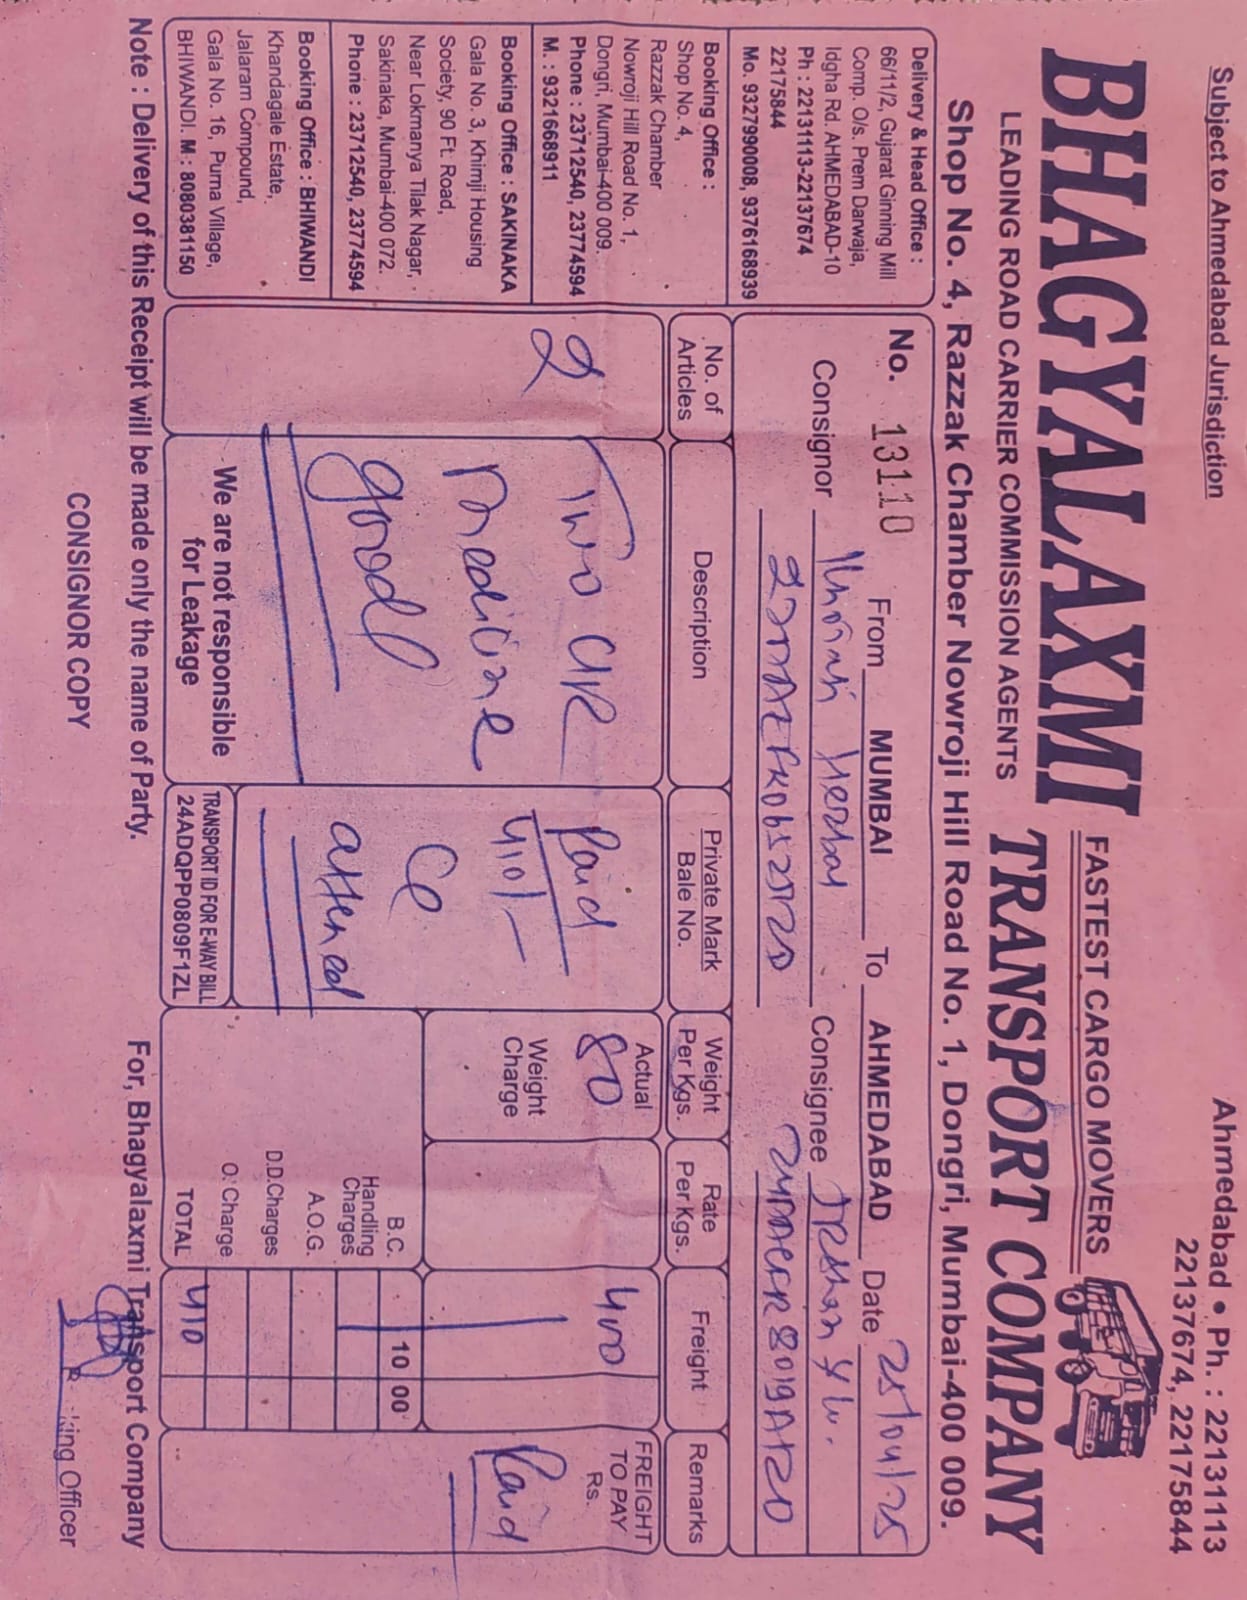 Subject to Ahmedabad Jurisdiction
Ahmedabad • Ph. : 22131113
22137674, 22175844
BHAGYALAXMI
FASTEST CARGO MOVERS
TRANSPORT COMPANY
LEADING ROAD CARRIER COMMISSION AGENTS
Shop No. 4, Razzak Chamber Nowroji Hill Road No. 1, Dongri, Mumbai-400 009.
Delivery & Head Office :
66/11/2, Gujarat Ginning Mill
Comp. O/s. Prem Darwaja,
Idgha Rd. AHMEDABAD-10
Ph : 22131113-22137674
22175844
Mo. 9327990008, 9376168939
Booking Office :
Shop No. 4,
Razzak Chamber
Nowroji Hill Road No. 1,
Dongri, Mumbai-400 009.
Phone : 23712540, 23774594
M. : 9321668911
Booking Office : SAKINAKA
Gala No. 3, Khimji Housing
Society, 90 Ft. Road,
Near Lokmanya Tilak Nagar,
Sakinaka, Mumbai-400 072.
Phone : 23712540, 23774594
Booking Office : BHIWANDI
Khandagale Estate,
Jalaram Compound,
Gala No. 16, Purna Village,
BHIWANDI. M : 8080381150
No. 13110 From MUMBAI To AHMEDABAD Date 25/04/25
Consignor Consignee
No. of Articles
Description
Private Mark
Bale No.
Weight Per Kgs.
Rate Per Kgs.
Freight
Remarks
2
Two
Medicine
good
Paid
410/-
Actual
80
Weight Charge
400
FREIGHT TO PAY Rs.
Paid
B.C. 10 00
Handling Charges
A.O.G.
D.D.Charges
O. Charge
TOTAL 410
We are not responsible for Leakage
TRANSPORT ID FOR E-WAY BILL
24ADQPP0809F1ZL
Note : Delivery of this Receipt will be made only the name of Party.
For, Bhagyalaxmi Transport Company
CONSIGNOR COPY
Officer